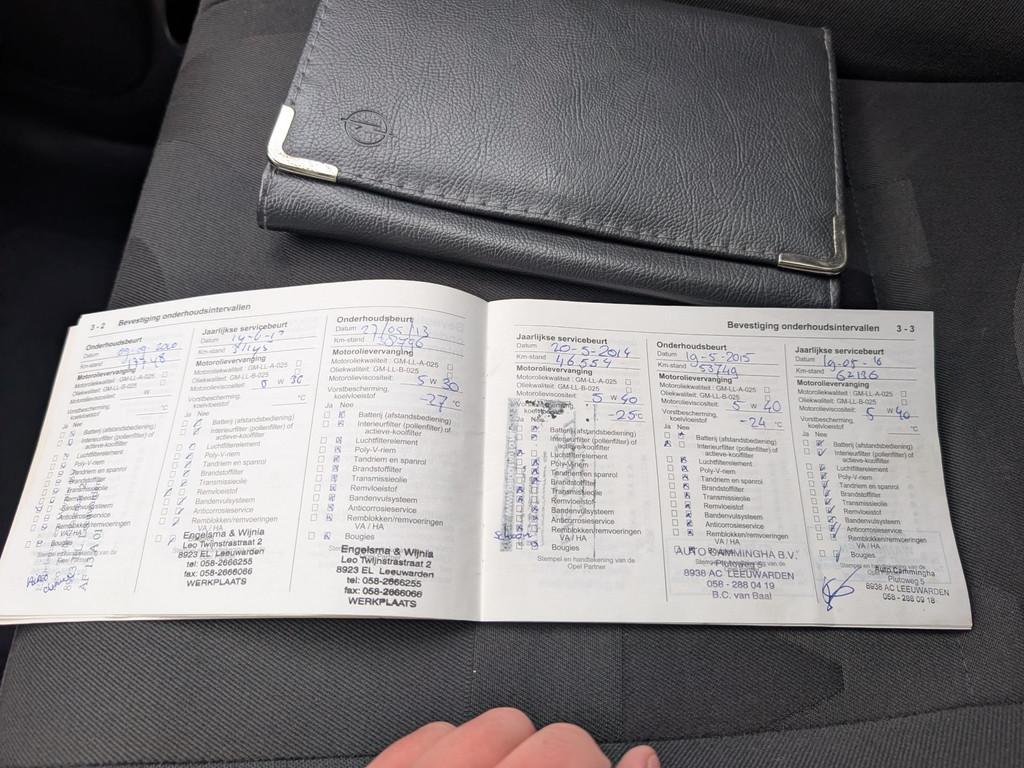 3 - 2 Bevestiging onderhoudsintervallen
Onderhoudsbeurt
Datum
Km-stand
Motorolievervanging
Motoroliekwaliteit: GM-LL-A-025
Oliekwaliteit: GM-LL-B-025
Motorolieviscositeit: W
Vorstbescherming, °C
koelvloeistof
Ja Nee
Batterij (afstandsbediening)
Interieurfilter (pollenfilter) of
actieve-koolfilter
Luchtfilterelement
Poly-V-riem
Tandriem en spanrol
Brandstoffilter
Transmissieolie
Remvloeistof
Bandenvulsysteem
Anticorrosieservice
Remblokken/remvoeringen
VA / HA
Bougies
Jaarlijkse servicebeurt
Datum
Km-stand
Motorolievervanging
Motoroliekwaliteit: GM-LL-A-025
Oliekwaliteit: GM-LL-B-025
Motorolieviscositeit: 5 W 30
Vorstbescherming, °C
koelvloeistof
Ja Nee
Batterij (afstandsbediening)
Interieurfilter (pollenfilter) of
actieve-koolfilter
Luchtfilterelement
Poly-V-riem
Tandriem en spanrol
Brandstoffilter
Transmissieolie
Remvloeistof
Bandenvulsysteem
Anticorrosieservice
Remblokken/remvoeringen
VA / HA
Bougies
Engelsma & Wijnia
Leo Twijnstrastraat 2
8923 EL Leeuwarden
tel: 058-2666255
fax: 058-2666066
WERKPLAATS
Onderhoudsbeurt
Datum 27/05/13
Km-stand
Motorolievervanging
Motoroliekwaliteit: GM-LL-A-025
Oliekwaliteit: GM-LL-B-025
Motorolieviscositeit: 5 W 30
Vorstbescherming,
koelvloeistof -27 °C
Ja Nee
Batterij (afstandsbediening)
Interieurfilter (pollenfilter) of
actieve-koolfilter
Luchtfilterelement
Poly-V-riem
Tandriem en spanrol
Brandstoffilter
Transmissieolie
Remvloeistof
Bandenvulsysteem
Anticorrosieservice
Remblokken/remvoeringen
VA / HA
Bougies
Engelsma & Wijnia
Leo Twijnstrastraat 2
8923 EL Leeuwarden
tel: 058-2666255
fax: 058-2666066
WERKPLAATS
Bevestiging onderhoudsintervallen 3 - 3
Jaarlijkse servicebeurt
Datum 20-5-2014
Km-stand 46554
Motorolievervanging
Motoroliekwaliteit: GM-LL-A-025
Oliekwaliteit: GM-LL-B-025
Motorolieviscositeit: 5 W 40
koelvloeistof -25 °C
Ja Nee
Batterij (afstandsbediening)
Interieurfilter (pollenfilter) of
actieve-koolfilter
Luchtfilterelement
Poly-V-riem
Tandriem en spanrol
Brandstoffilter
Transmissieolie
Remvloeistof
Bandenvulsysteem
Anticorrosieservice
Remblokken/remvoeringen
VA / HA
schoon
Bougies
Stempel en handtekening van de
Opel Partner
Onderhoudsbeurt
Datum 19-5-2015
Km-stand 53749
Motorolievervanging
Motoroliekwaliteit: GM-LL-A-025
Oliekwaliteit: GM-LL-B-025
Motorolieviscositeit: 5 W 40
Vorstbescherming,
koelvloeistof -24 °C
Ja Nee
Batterij (afstandsbediening)
Interieurfilter (pollenfilter) of
actieve-koolfilter
Luchtfilterelement
Poly-V-riem
Tandriem en spanrol
Brandstoffilter
Transmissieolie
Remvloeistof
Bandenvulsysteem
Anticorrosieservice
Remblokken/remvoeringen
VA / HA
Bougies
AUTO CAMMINGHA B.V.
Plutoweg 5
8938 AC LEEUWARDEN
058 - 288 04 19
B.C. van Baal
Jaarlijkse servicebeurt
Datum 19-05-16
Km-stand 62136
Motorolievervanging
Motoroliekwaliteit: GM-LL-A-025
Oliekwaliteit: GM-LL-B-025
Motorolieviscositeit: 5 W 40
Vorstbescherming,
koelvloeistof °C
Ja Nee
Batterij (afstandsbediening)
Interieurfilter (pollenfilter) of
actieve-koolfilter
Luchtfilterelement
Poly-V-riem
Tandriem en spanrol
Brandstoffilter
Transmissieolie
Remvloeistof
Bandenvulsysteem
Anticorrosieservice
Remblokken/remvoeringen
VA / HA
Bougies
Auto Cammingha
Plutoweg 5
8938 AC LEEUWARDEN